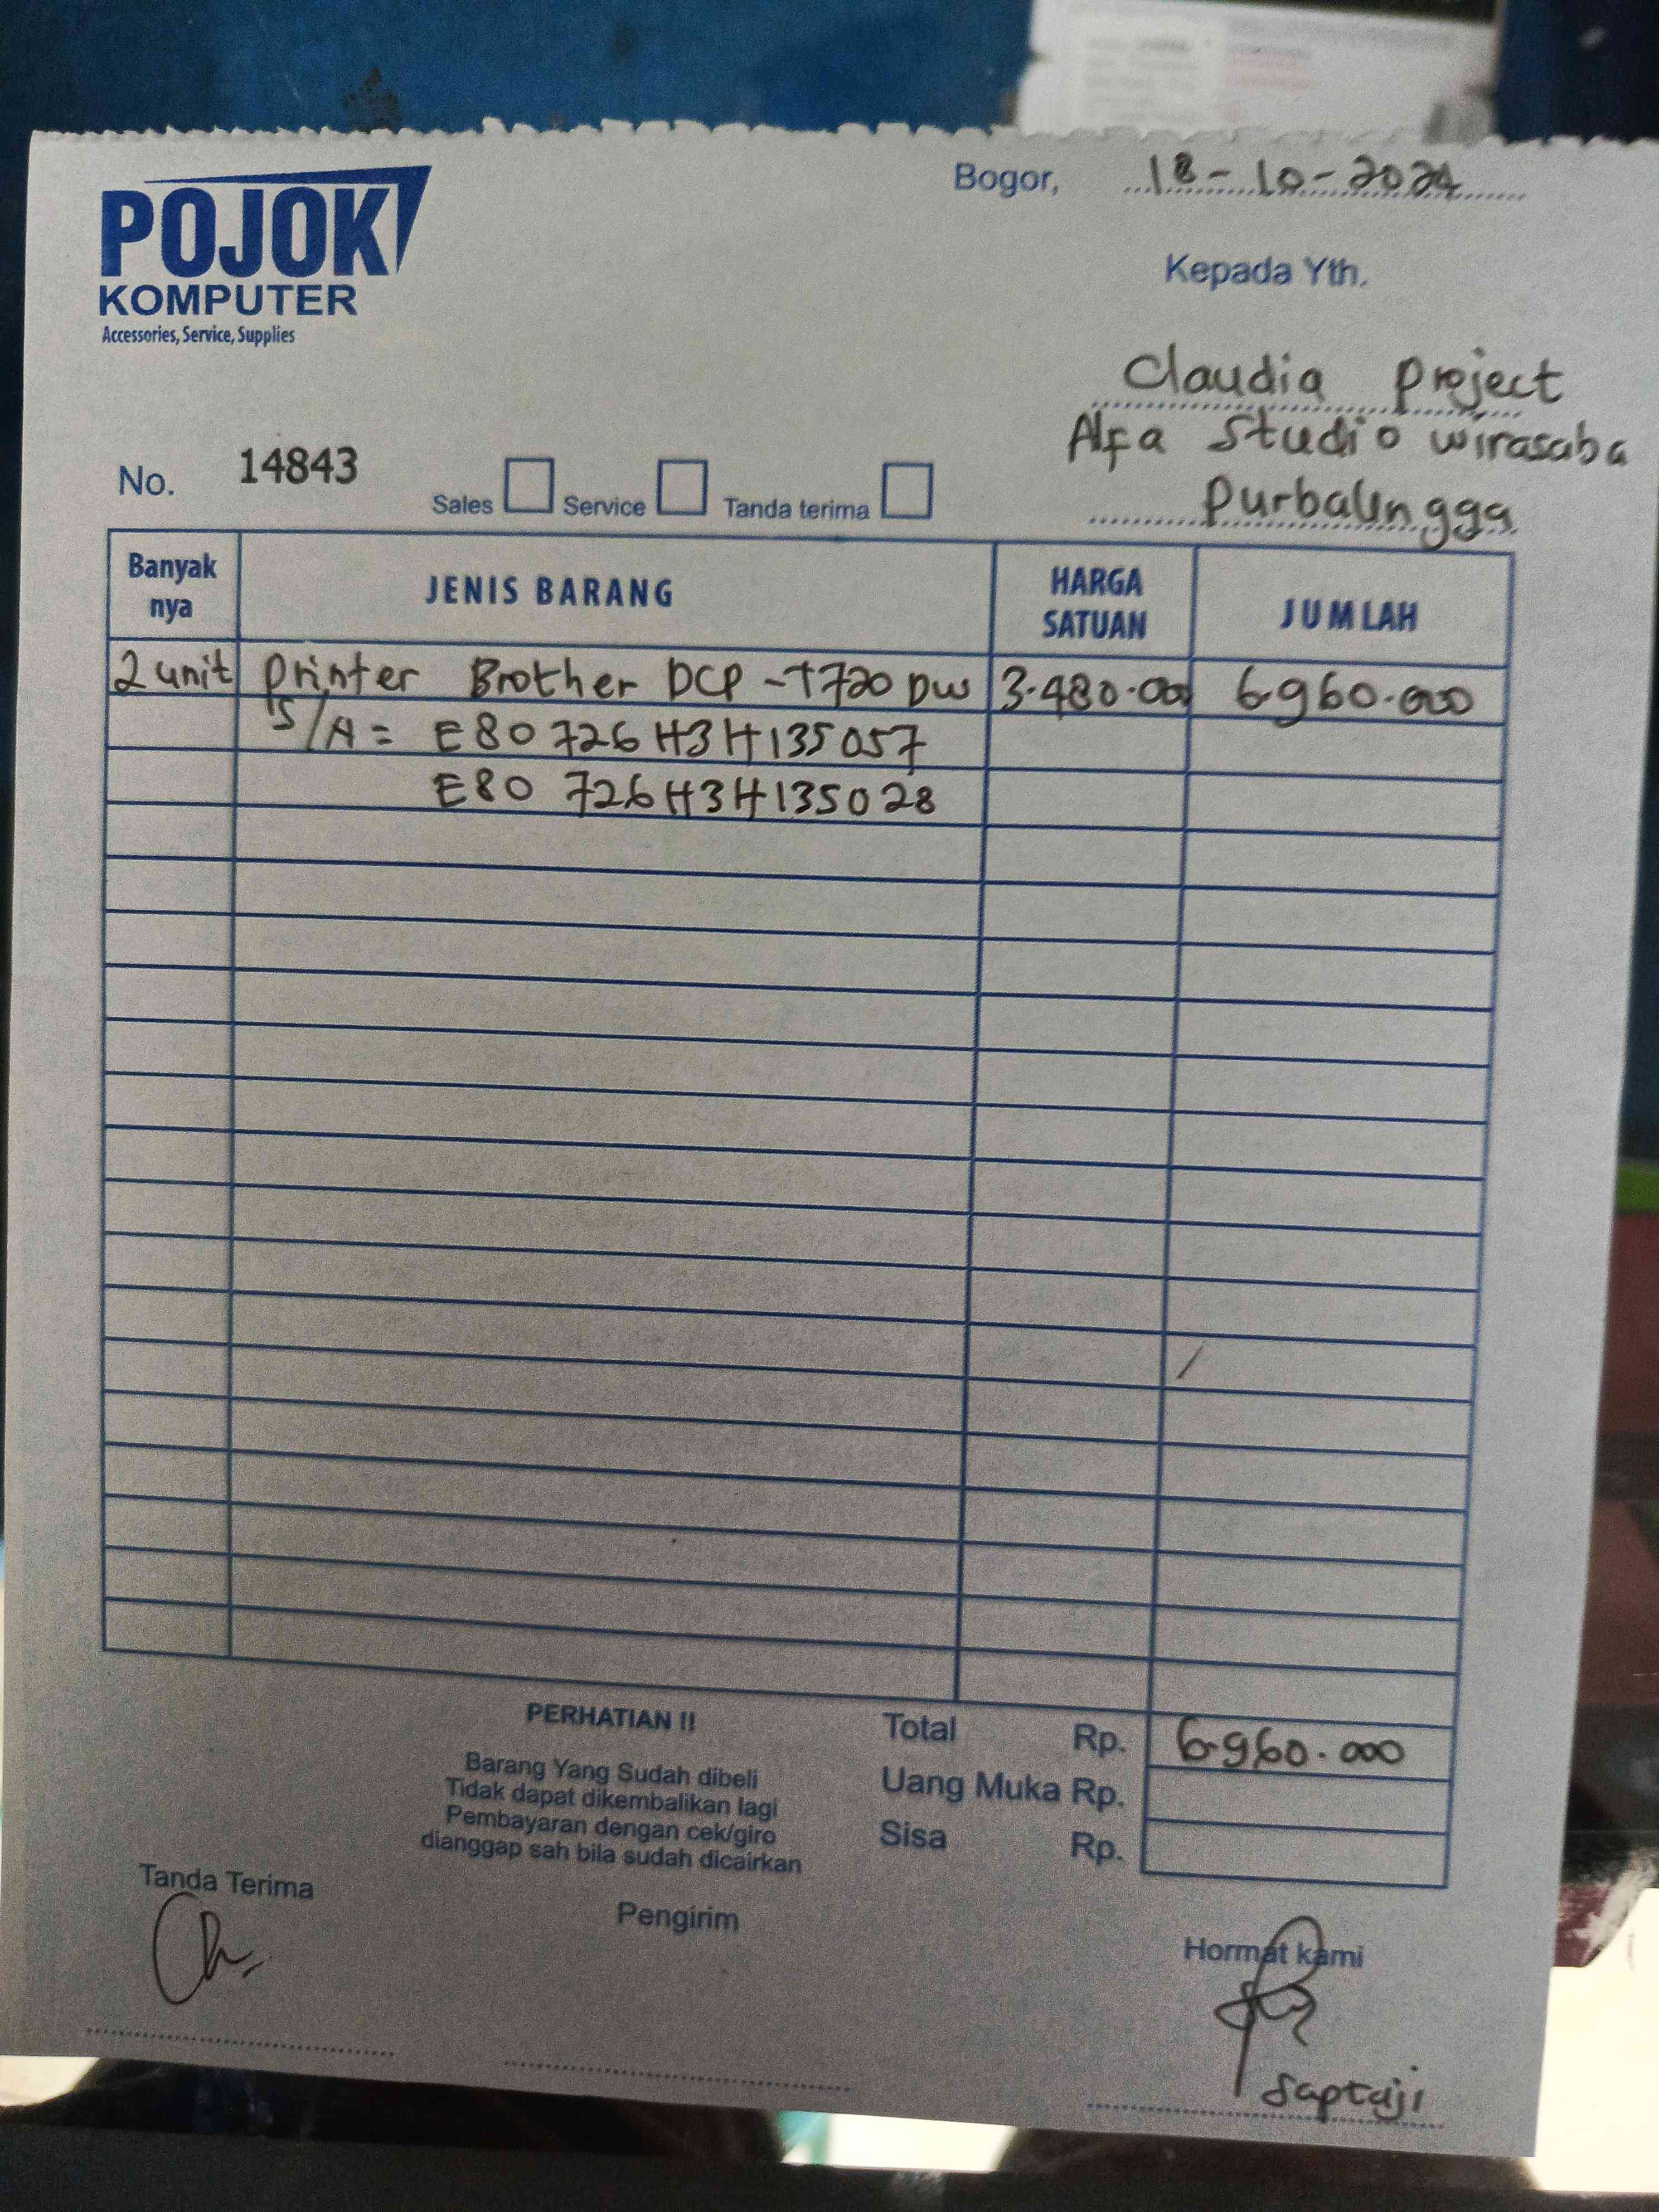 POJOK
KOMPUTER
Accessories, Service, Supplies
Bogor, 18-10-2024
Kepada Yth.
Claudia Project
Alfa Studio wirasaba
Purbalingga
No. 14843
Sales Service Tanda terima
Banyak nya JENIS BARANG HARGA SATUAN JUMLAH
2 unit Printer Brother DCP-T720 DW 3.480.000 6.960.000
S/N = E80726H3H135057
E80726H3H135028
PERHATIAN !!
Barang Yang Sudah dibeli
Tidak dapat dikembalikan lagi
Pembayaran dengan cek/giro
dianggap sah bila sudah dicairkan
Total Rp. 6.960.000
Uang Muka Rp.
Sisa Rp.
Tanda Terima
Pengirim
Hormat kami
Saptaji